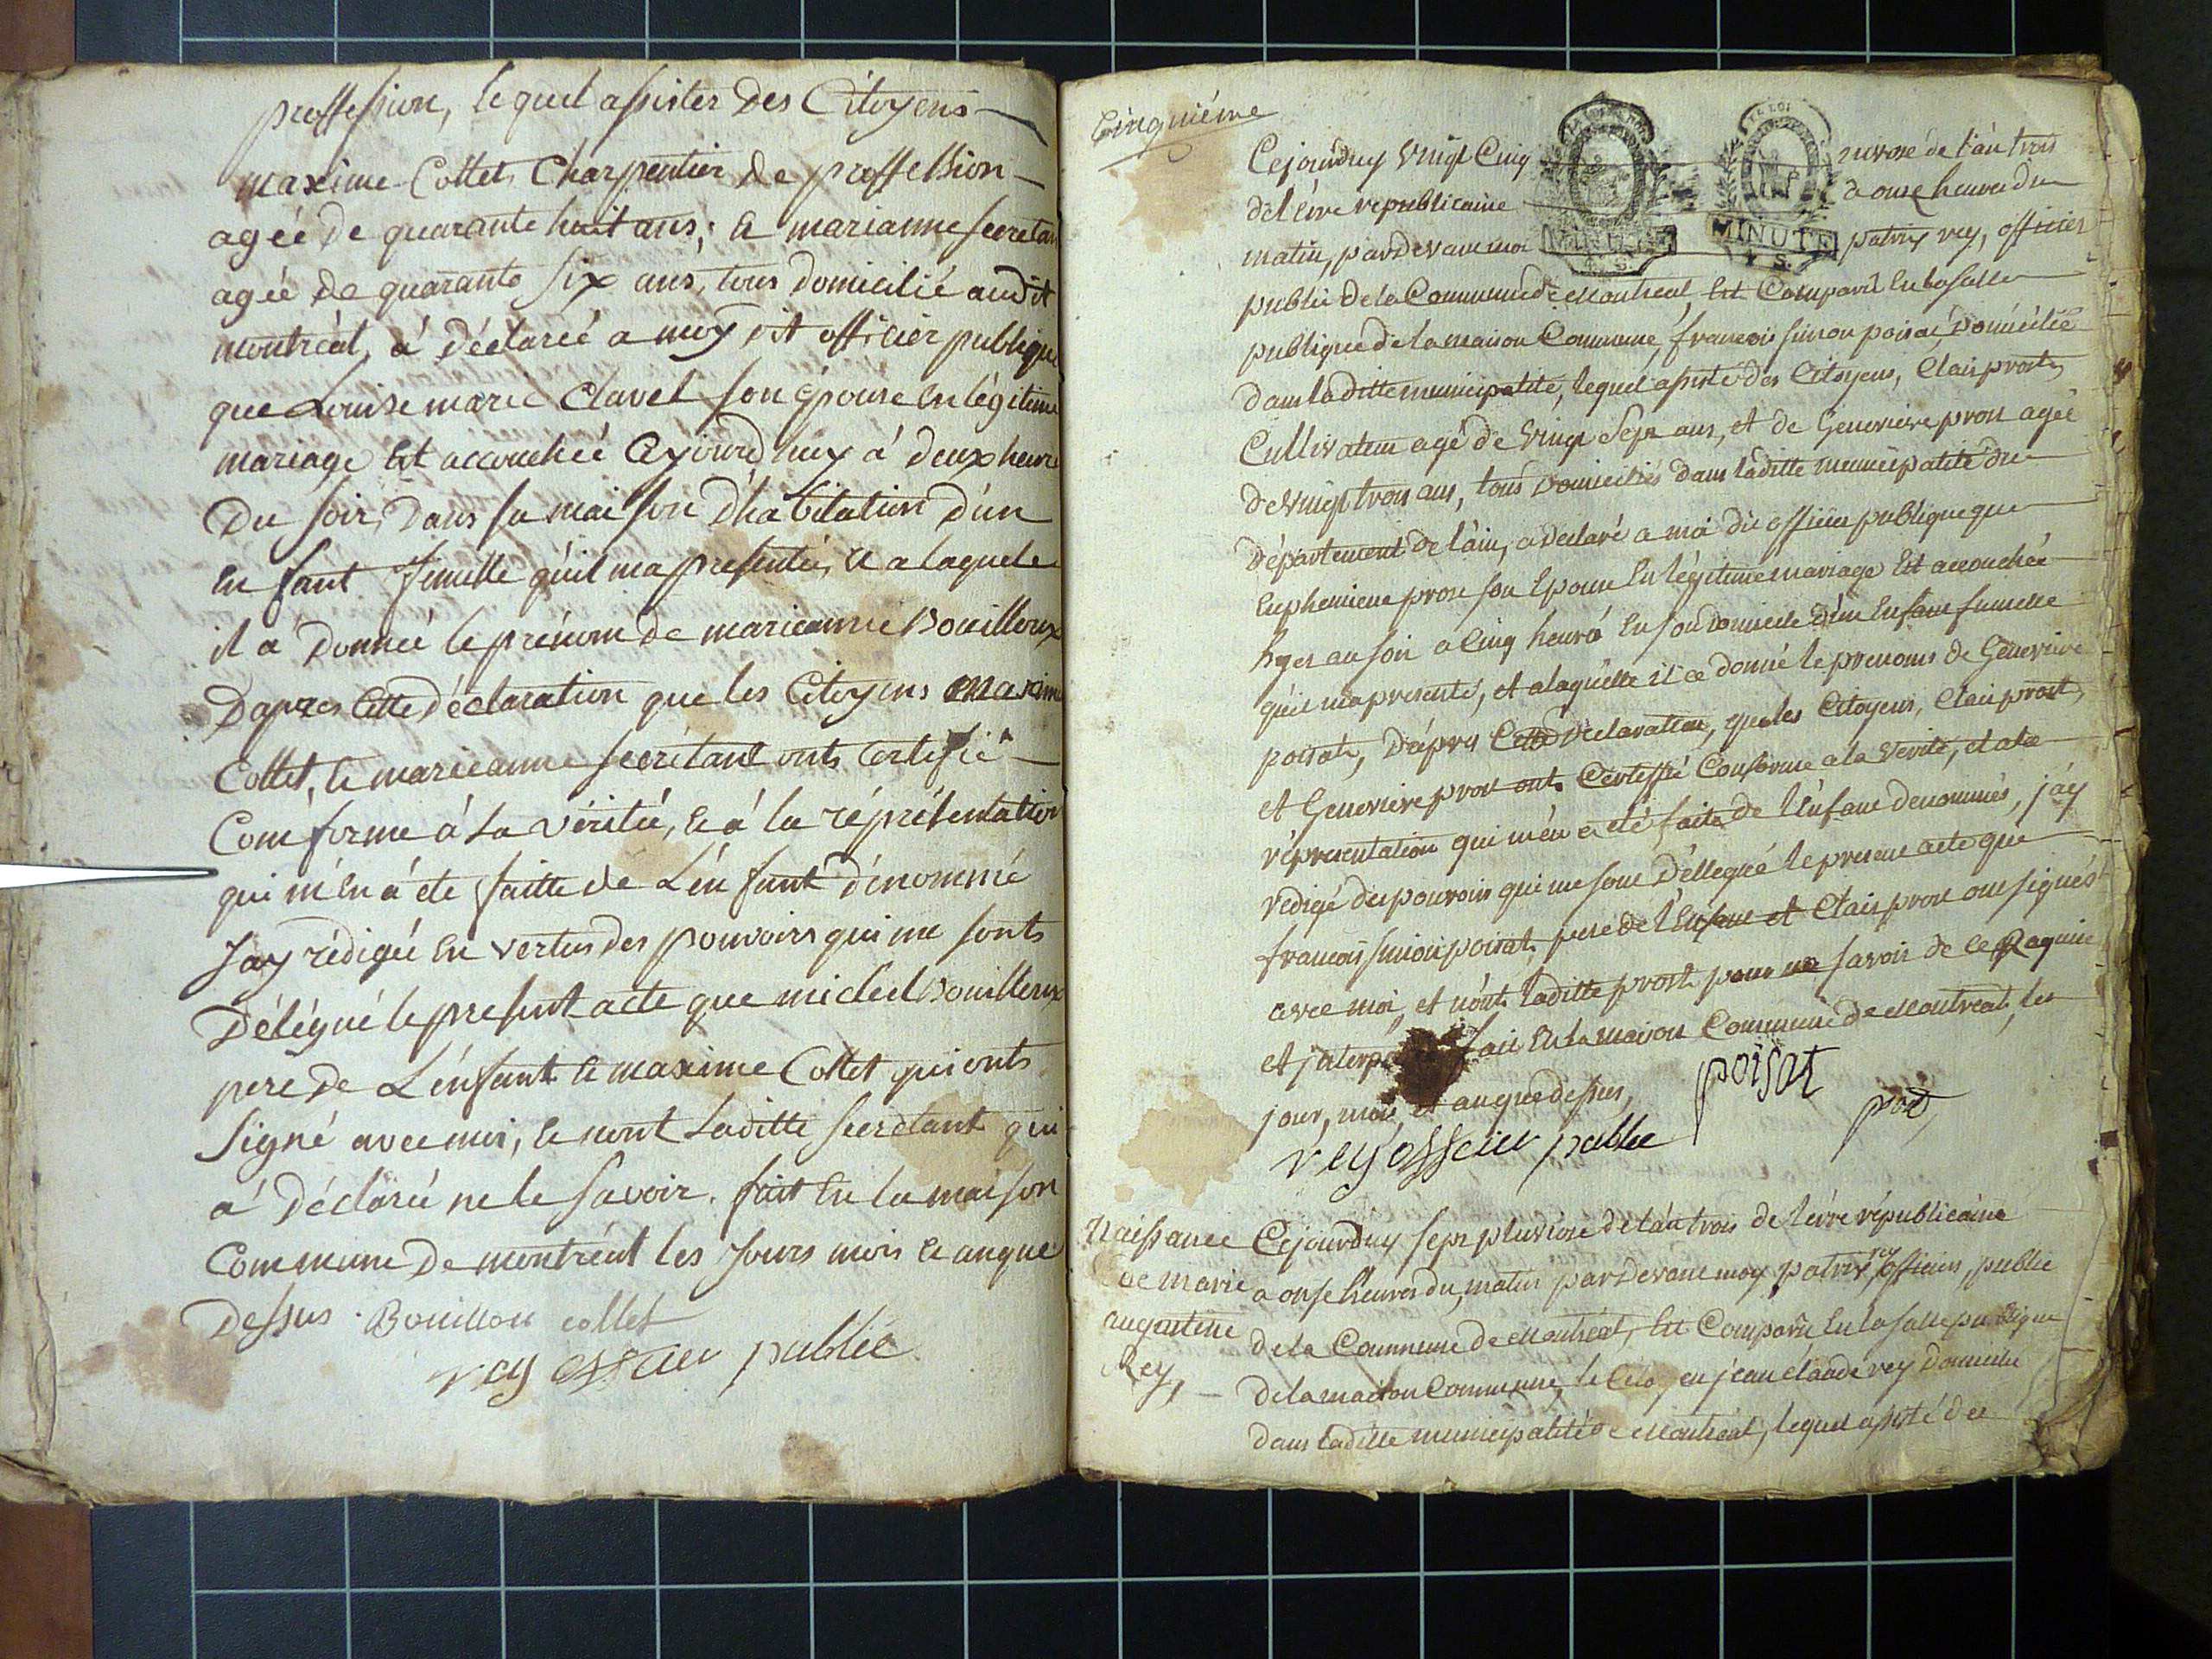 proffession, lequel assister des Citoyens
maxime Collet Charpentier de proffession
agée de quarante huit ans; & marianne secretan
agée de quarante six ans, tous domicilié audit
montréal, à déclarée a moy dit officier publique
que Louise marie Clavel son épouse en légitime
mariage est accouchée Cejourdhuy à deux heure
Du soir, dans sa maison d'habitation d'un
enfant femelle qu'il ma presentée, & a laquele
il a donnée le prénom de marieanne Bouilloux
D'apres cette déclaration que les Citoyens Maxime
Collet, & marieanne secrétant onts certifié
Comforme à la vérité, & à la réprésentation
qui m'en à été faitte de L'énfant dénommé
Jay rédigée en vertus des pouvoirs qui me sonts
Délégué le present acte que michel Bouilloux
pere de L'énfant & maxime Collet qui onts
Signé avec moi, & nont Laditte secretant qui
à déclaré ne le savoir. fait en la maison
Commune de montréal les Jours mois & anque
Dessus. Bouillou collet
rey officier publie
Cinquiéme
Cejourduy vingt Cinq nivose de l'an trois
de l'érre republicaine à onze heures du
matin, pardevant moi patrix rey, officier
MINUTE MINUTE
public de la Commune de Montréal, Est Comparû en la salle
publique de la maison Commune, francois simon poisat, domicilié
dans laditte municipalité, lequel assisté des Citoyens, Clair prost,
Cultivateur agé de vingt sept ans, et de Genevieve prost agée
de vingt trois ans, tous domiciliés dans laditte municipalité du
Département de l'ain, a declaré a moi dit officier publique que
Euphemiene prost son Epouse En légitime mariage Est accouchée
hyer au soir a Cinq heures En son domicile d'un Enfant fumelle
qu'il ma presenté, et a laquelle il a donné le prenoms de Genevieve
poisat, D'après Cette déclaration, que les Citoyens, Clair prost,
et Genevieve prost ont Certiffié Conforme a la verité, et a la
répresentation qui m'en a eté faite de l'Enfant denommés, j'ay
redigé des pouvoirs qui me sont Déllegué le present acte que
francois simon poisat, pere de l'Enfant et Clair prost ont signés
avec moi, et nont laditte prost pour ne savoir de ce Requise
et fait En la maison Commune de Montréal, les
jour, mois, et an que dessus,
poisat
prot
rey officier publie
Naissance
de marie
augustine
Rey,
Cejourduy sept pluviose de l'an trois de l'érre républicaine
a onse heures du matin pardevant moy patrix rey officier, public
de la Commune de Montréal, Est Comparû En la salle publique
de la maison Commune, le Citoyen jean claude rey domicilié
dans laditte municipalité de Montréal, lequel assisté des